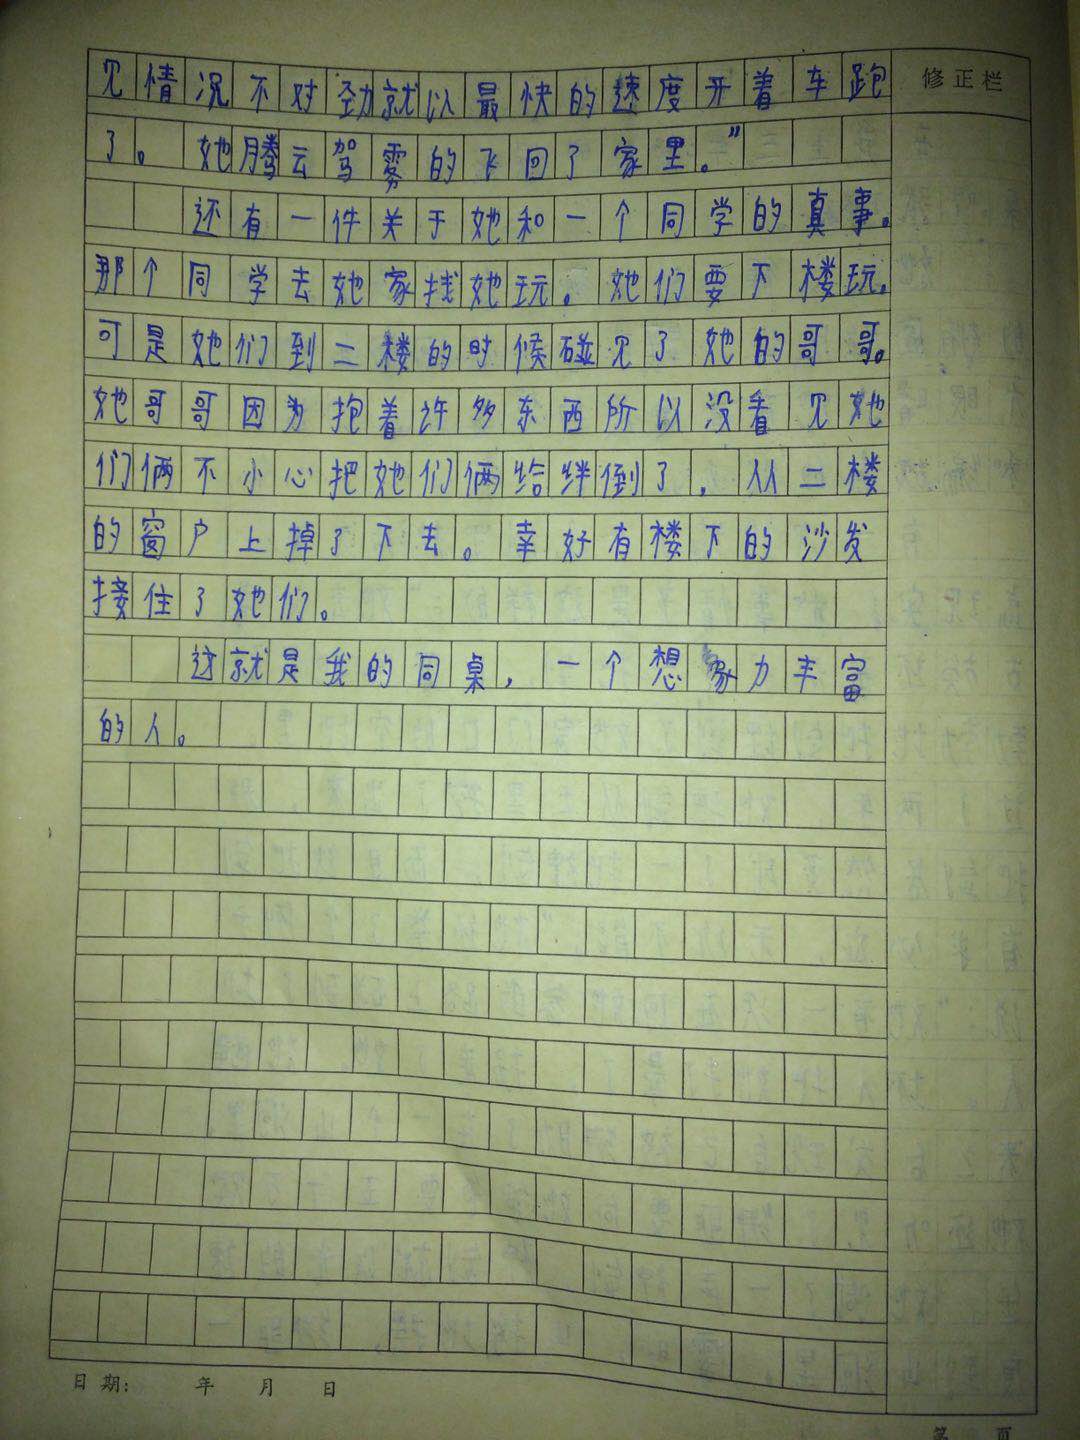 见情况不对劲就以最快的速度开着车跑
修正栏
了。她腾云驾雾的飞回了家里。”
还有一件关于她和一个同学的真事。
那个同学去她家找她玩。她们要下楼玩。
可是她们到二楼的时候碰见了她的哥哥。
她哥哥因为抱着许多东西所以没看见她
们俩不小心把她们俩给绊倒了，从二楼
的窗户上掉了下去。幸好有楼下的沙发
接住了她们。
这就是我的同桌，一个想象力丰富
的人。
日期： 年 月 日
第 页